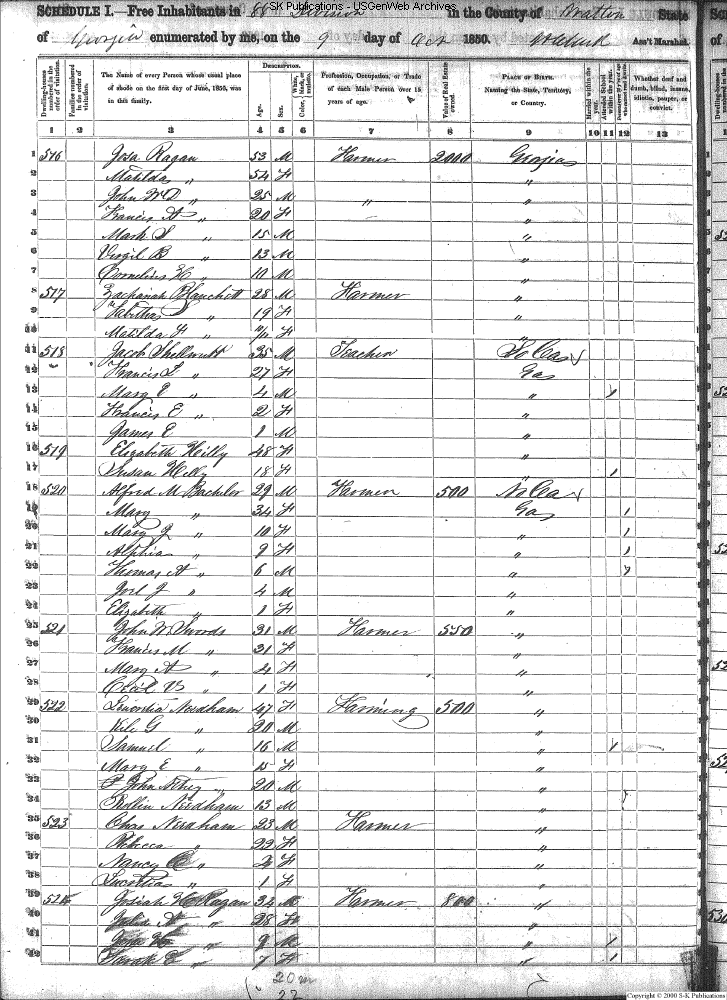 S-K Publications - USGenWeb Archives
SCHEDULE I.—Free Inhabitants in 86 Division in the County of Bratton State
of Georgia enumerated by me, on the 9 day of Oct 1850. Ass't Marshal.
Dwelling-houses numbered in the order of visitation.
Families numbered in the order of visitation.
The Name of every Person whose usual place of abode on the first day of June, 1850, was in this family.
DESCRIPTION.
Age.
Sex.
White, black, or mulatto. Color,
Profession, Occupation, or Trade of each Male Person over 15 years of age.
Value of Real Estate owned.
PLACE OF BIRTH. Naming the State, Territory, or Country.
Married within the year.
Attended School within the year.
Persons over 20 y'rs of age who cannot read & write.
Whether deaf and dumb, blind, insane, idiotic, pauper, or convict.
1 2 3 4 5 6 7 8 9 10 11 12 13
1 516 Josa Ragan 53 M Farmer 2000 Georgia
2 Matilda " 54 F "
3 John W D " 25 M " "
4 Francis A " 20 F "
5 Mark S " 15 M "
6 Virgil B " 13 M "
7 Cornelius H " 10 M "
8 517 Zachariah Blanchett 28 M Farmer "
9 Tabitha S " 19 F "
10 Matilda F " F "
11 518 Jacob Shellnutt 35 M Teacher So Ca
12 " Francis L " 27 F Ga
13 Mary E " 4 M " 1
14 Francis E " 2 F "
15 James E 1 M "
16 519 Elizabeth Hilly 48 F "
17 Susan Hilly 18 F " 1
18 520 Alfred M Bachelor 29 M Farmer 500 No Ca
19 Mary " 34 F Ga 1
20 Mary J " 10 F " 1
21 Alphia " 9 F " 1
22 Thomas A " 6 M "
23 Joel J " 4 M "
24 Elizabeth " 1 F "
25 521 John W Swords 31 M Farmer 550 "
26 Francis M " 31 F "
27 Mary A " 4 F "
28 V " 1 F "
29 522 Lucretia Needham 47 F Farming 500 "
30 G " 20 M "
31 Samuel " 16 M " 1
32 Mary E " 15 F "
33 John " 20 M "
34 Rollin Needham 13 M "
35 523 Chas Needham 23 M Farmer "
36 Rebecca " 22 F "
37 Nancy C " F "
38 Lucretia " 1 F "
39 524 Josiah H Ragan 34 M Farmer 800 "
40 A " 28 F "
41 " 9 M " 1
42 Sarah E " 7 F " 1
20 m
22
Copyright © 2000 S-K Publications